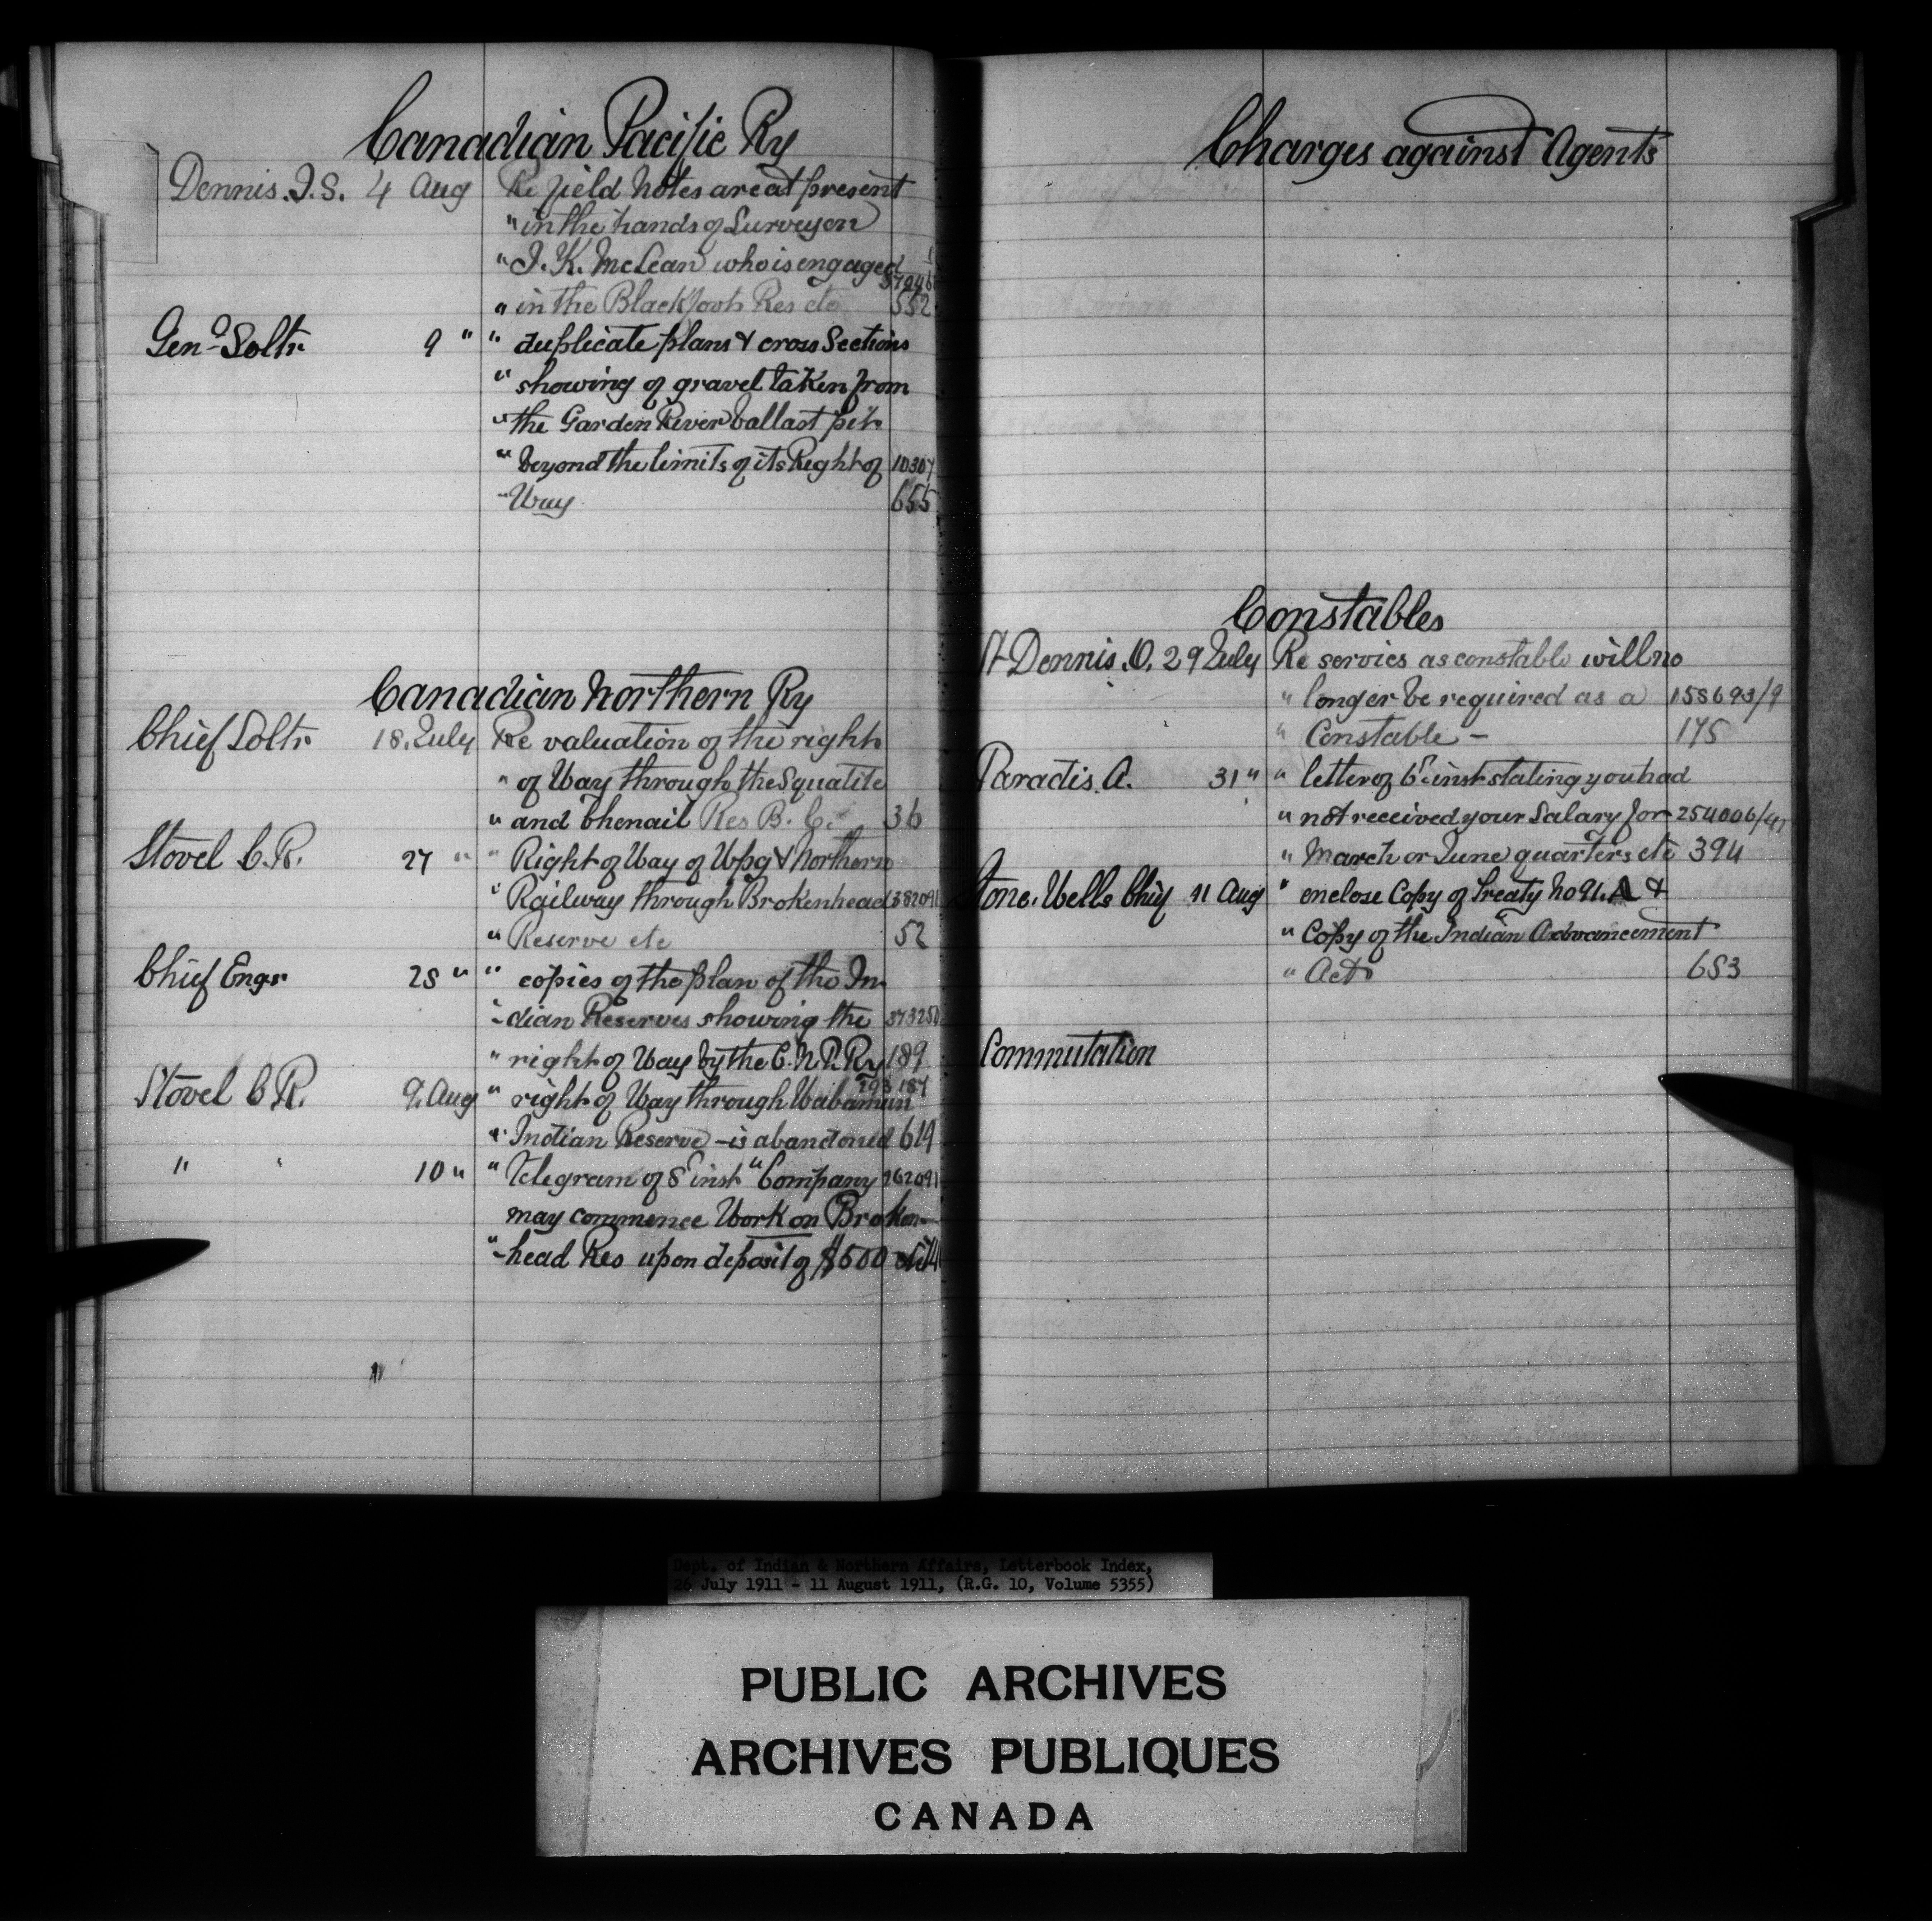 Canadian Pacific Ry
Dennis. J.S. 4 Aug Re field notes are at present
" in the hands of Surveyor
" J. K. McLean who is engaged
" in the Blackfoot Res etc 552
Genl Soltr 9 " " duplicate plans & cross Sections
" showing of gravel taken from
" the Garden River ballast pit
" beyond the limits of its Right of 10307
" Way 655
Canadian Northern Ry
Chief Soltr 18. July Re valuation of the right
" of Way through the Squatits
" and Chenail Res B. C. 36
Stovel C.R. 27 " " Right of Way of Wpg & Northern
" Railway through Brokenhead 382091
" Reserve etc 52
Chief Engr 28 " " copies of the plan of the In
- dian Reserves showing the 373250
" right of Way by the C.N.P. Ry 189
Stovel C R. 9. Aug " right of Way through Wabamun 293187
" Indian Reserve - is abandoned 619
" " 10 " " Telegram of 8th inst " Company 262091
may commence Work on Broken-
"-head Res upon deposit of $500
Charges against Agents
Constables
St Dennis. O. 29 July Re services as constable will no
" longer be required as a 158693/9
" Constable - 175
Paradis. A. 31 " " letter of 6th inst stating you had
" not received your Salary for 254006/41
" March or June quarters etc 394
Stone. Wells Chief 11 Aug " enclose Copy of Treaty No 91. A &
" Copy of the Indian Advancement
" Act 683
Commutation
Dept. of Indian & Northern Affairs, Letterbook Index,
26 July 1911 - 11 August 1911, (R.G. 10, Volume 5355)
PUBLIC ARCHIVES
ARCHIVES PUBLIQUES
CANADA